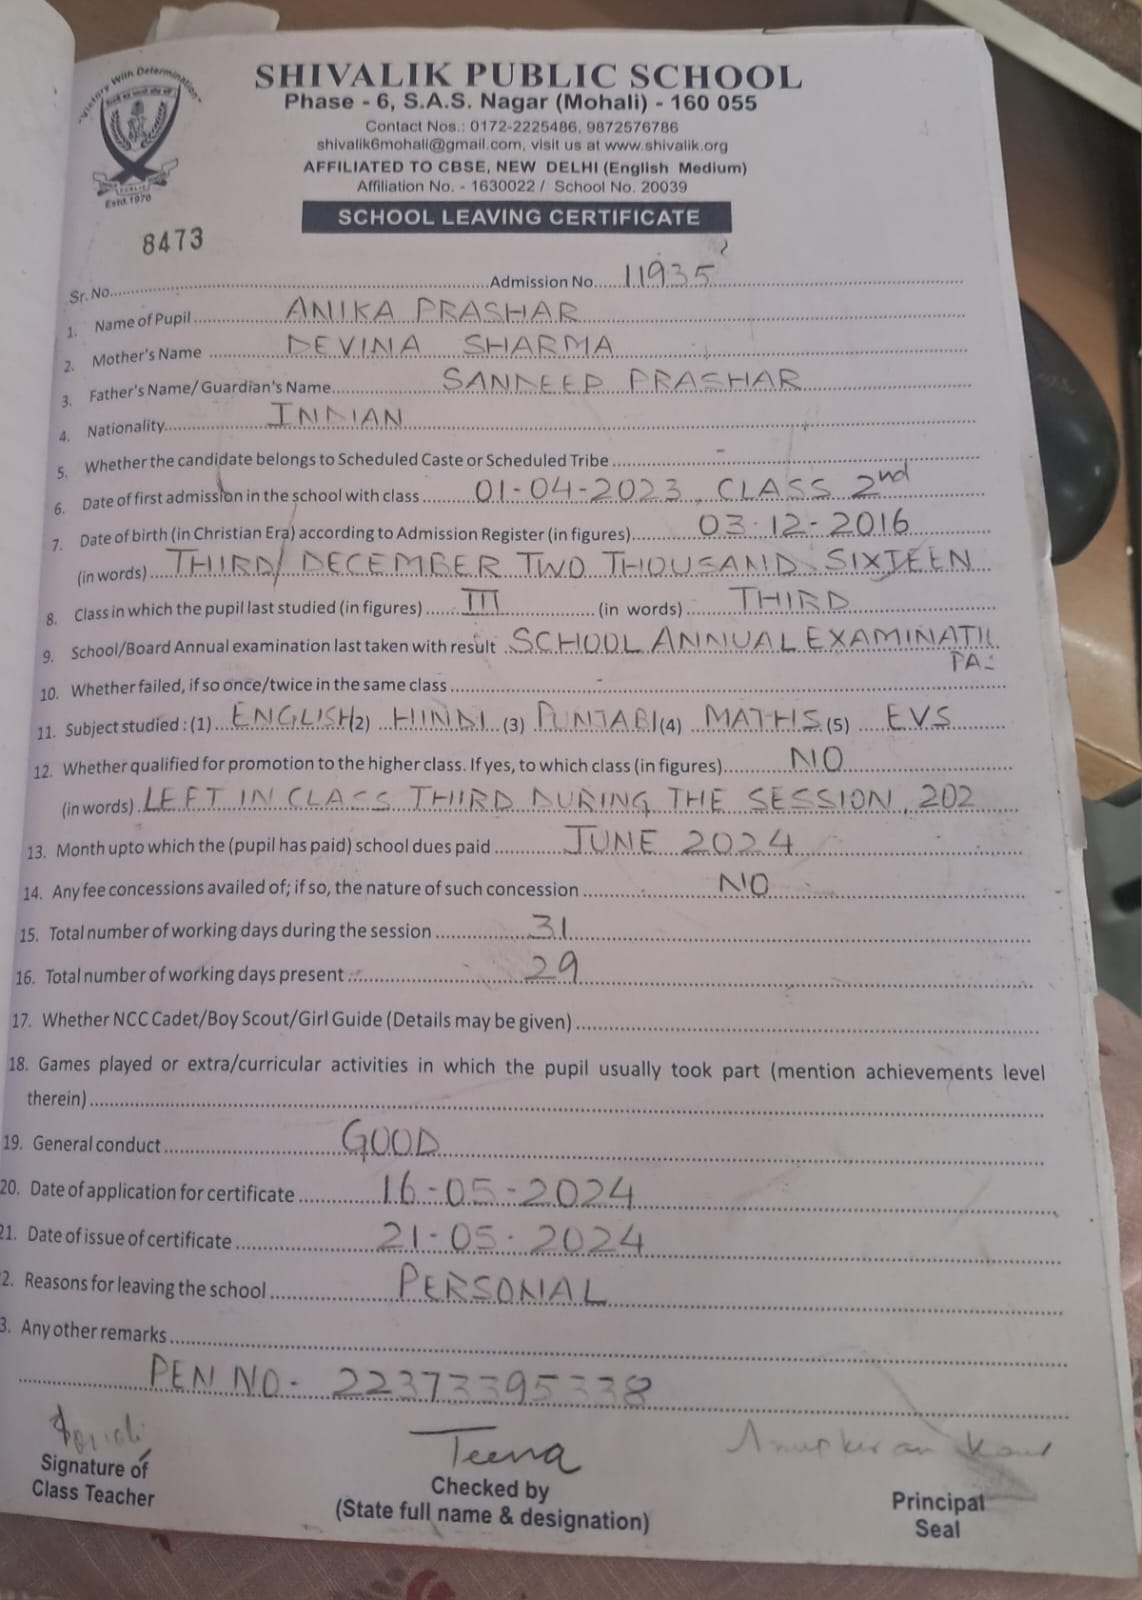 "Victory With Determination"
PUBLIC
Estd.1970
SHIVALIK PUBLIC SCHOOL
Phase - 6, S.A.S. Nagar (Mohali) - 160 055
Contact Nos.: 0172-2225486, 9872576786
shivalik6mohali@gmail.com, visit us at www.shivalik.org
AFFILIATED TO CBSE, NEW DELHI (English Medium)
Affiliation No. - 1630022 / School No. 20039
SCHOOL LEAVING CERTIFICATE
8473
Sr. No. Admission No. 11935
1. Name of Pupil ANIKA PRASHAR
2. Mother's Name DEVINA SHARMA
3. Father's Name/ Guardian's Name SANDEEP PRASHAR
4. Nationality INDIAN
5. Whether the candidate belongs to Scheduled Caste or Scheduled Tribe -
6. Date of first admission in the school with class 01-04-2023, CLASS 2nd
7. Date of birth (in Christian Era) according to Admission Register (in figures) 03-12-2016
(in words) THIRD/ DECEMBER TWO THOUSAND SIXTEEN
8. Class in which the pupil last studied (in figures) III (in words) THIRD
9. School/Board Annual examination last taken with result SCHOOL ANNUAL EXAMINATI
PA
10. Whether failed, if so once/twice in the same class -
11. Subject studied : (1) ENGLISH (2) HINDI (3) PUNJABI (4) MATHS (5) EVS
12. Whether qualified for promotion to the higher class. If yes, to which class (in figures) NO
(in words) LEFT IN CLASS THIRD DURING THE SESSION, 202
13. Month upto which the (pupil has paid) school dues paid JUNE 2024
14. Any fee concessions availed of; if so, the nature of such concession NO
15. Total number of working days during the session 31
16. Total number of working days present 29
17. Whether NCC Cadet/Boy Scout/Girl Guide (Details may be given)
18. Games played or extra/curricular activities in which the pupil usually took part (mention achievements level
therein)
19. General conduct GOOD
20. Date of application for certificate 16-05-2024
21. Date of issue of certificate 21-05-2024
2. Reasons for leaving the school PERSONAL
3. Any other remarks
PEN NO- 22373395338
Teena
Anupkiran Kaur
Signature of
Class Teacher
Checked by
(State full name & designation)
Principal
Seal